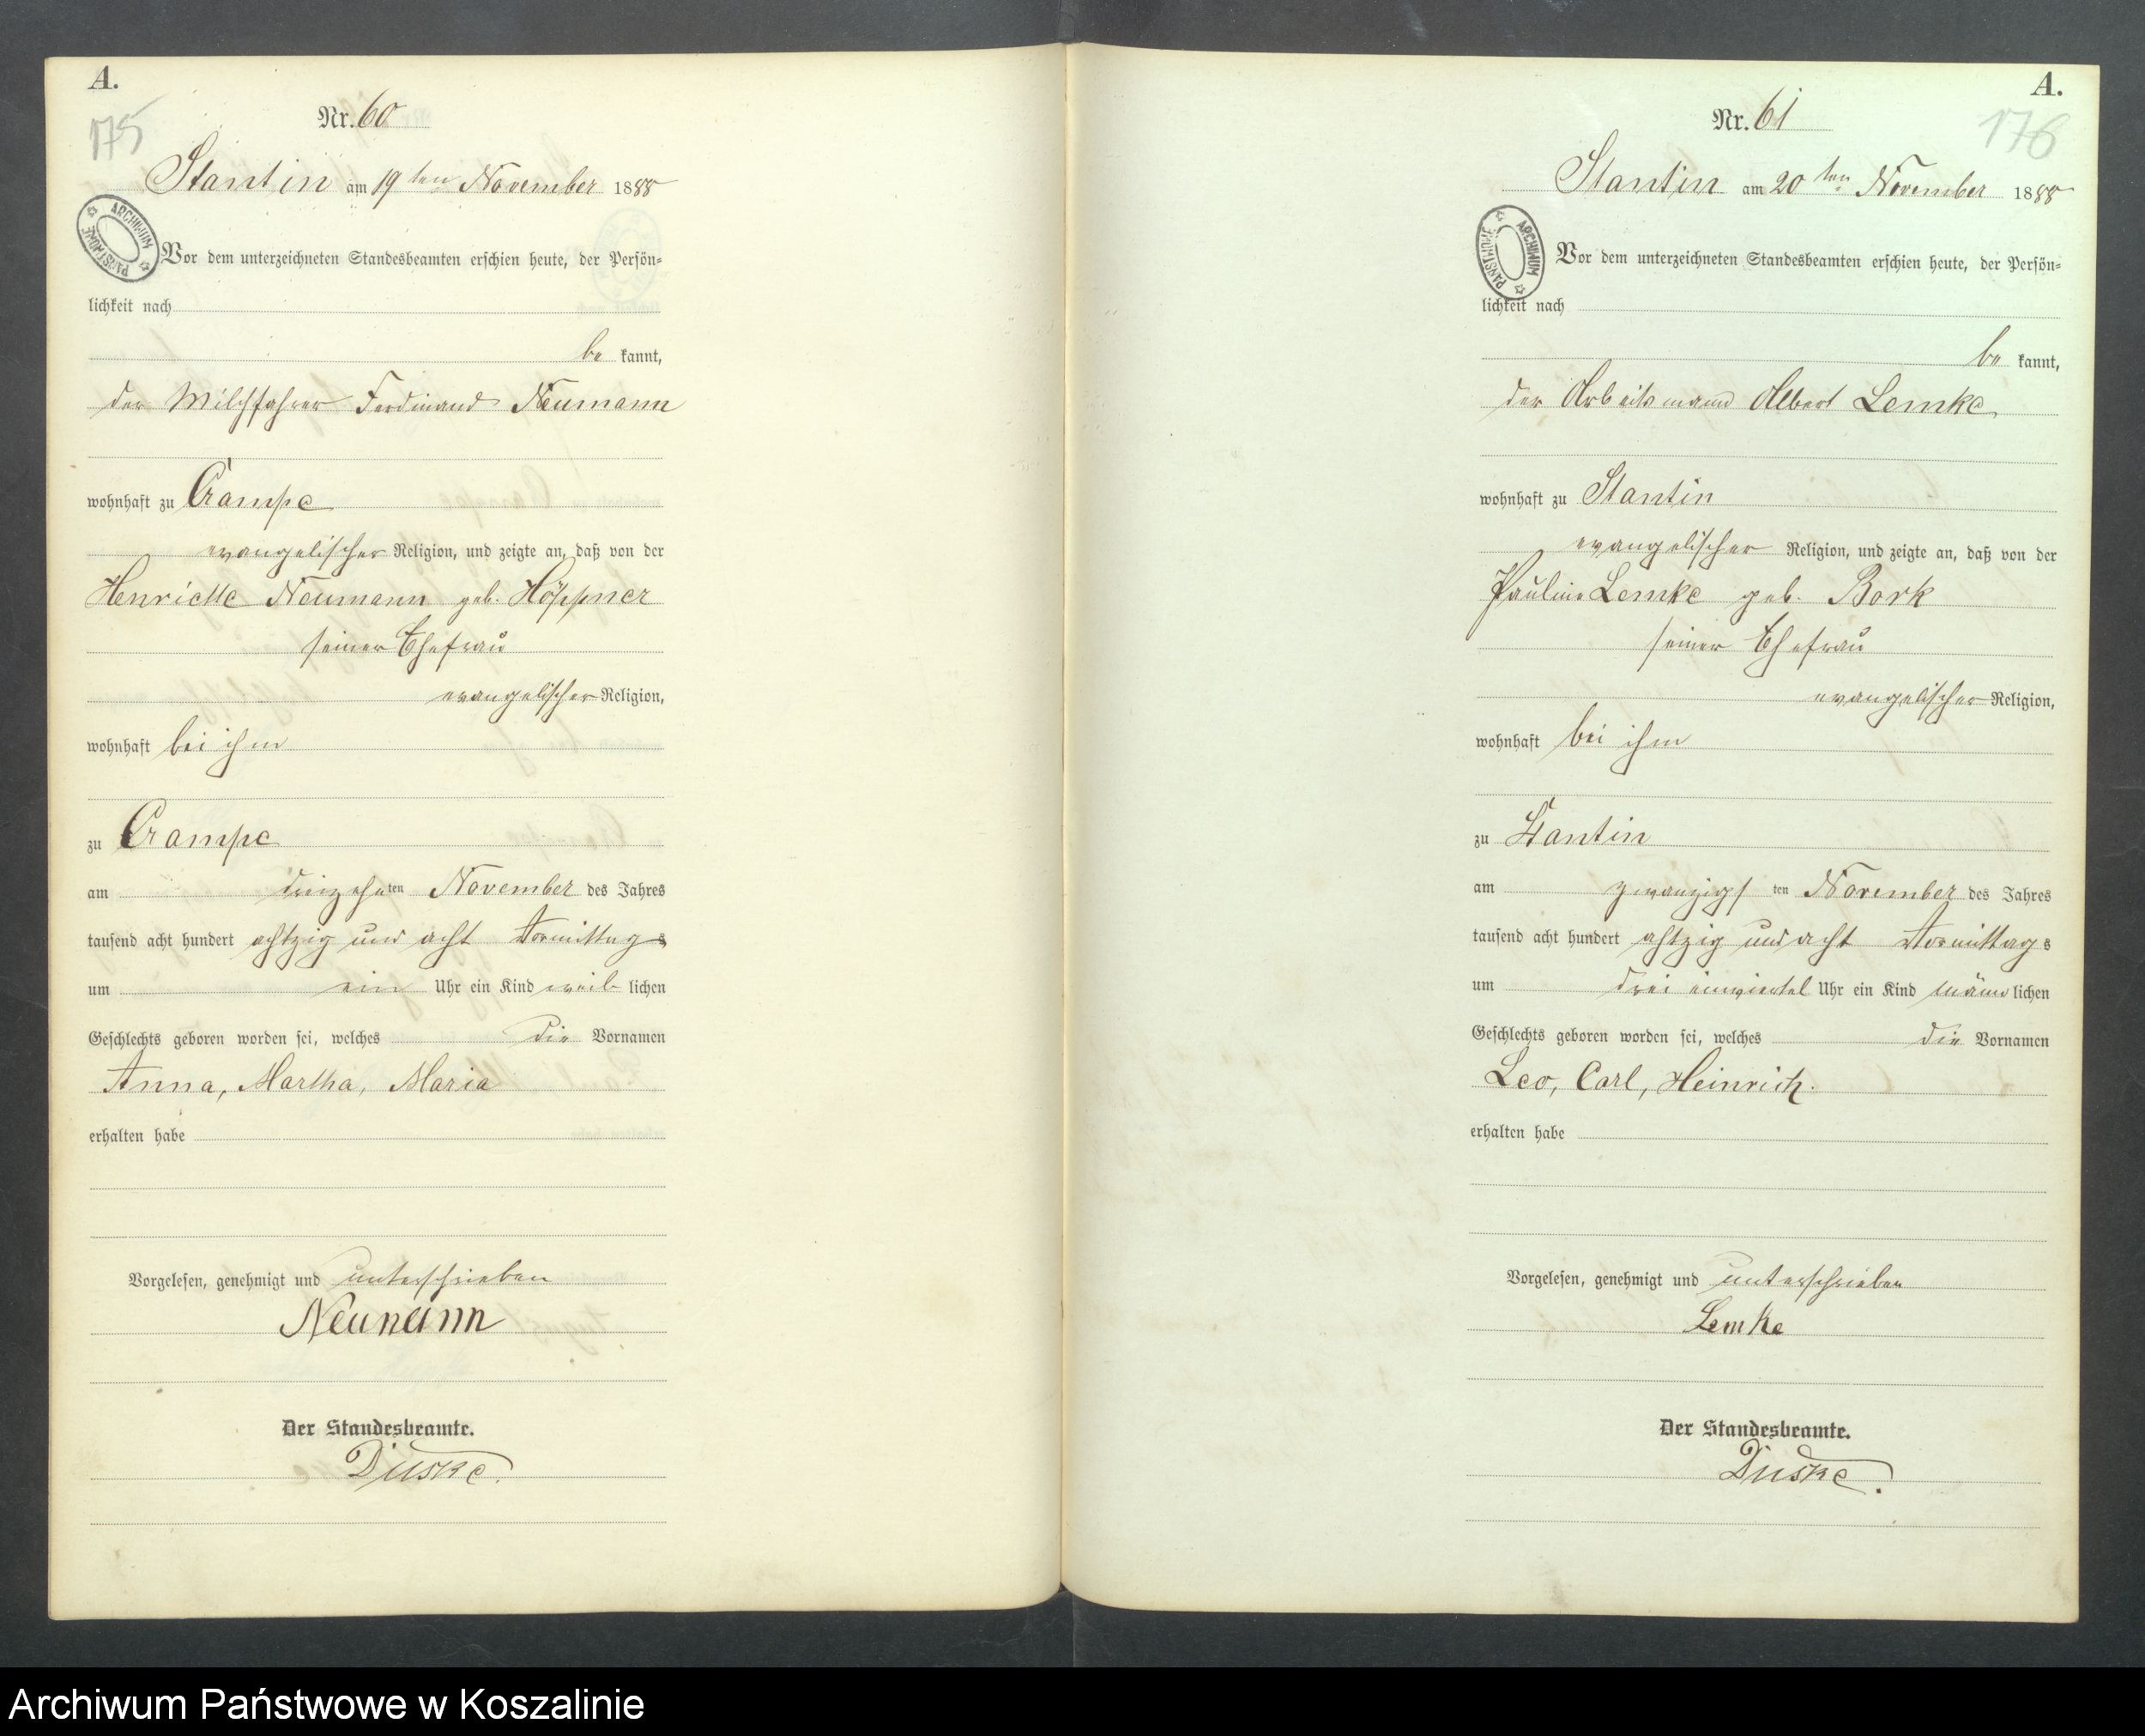 A.
175
Nr. 60
Stantin am 19ten November 1888
ARCHIWUM PAŃSTWOWE
Vor dem unterzeichneten Standesbeamten erschien heute, der Persön=
lichkeit nach
be kannt,
der Milchfahrer Ferdinand Neumann
wohnhaft zu Crampe
evangelischer Religion, und zeigte an, daß von der
Henriette Neumann geb. Höppner
seiner Ehefrau
evangelischer Religion,
wohnhaft bei ihm
zu Crampe
am dreizehnten November des Jahres
tausend acht hundert achtzig und acht Vormittags
um ein Uhr ein Kind weiblichen
Geschlechts geboren worden sei, welches die Vornamen
Anna, Martha, Maria
erhalten habe
Vorgelesen, genehmigt und unterschrieben
Neumann
Der Standesbeamte.
Duske.
A.
176
Nr. 61
Stantin am 20ten November 1888
ARCHIWUM PAŃSTWOWE
Vor dem unterzeichneten Standesbeamten erschien heute, der Persön=
lichkeit nach
be kannt,
der Arbeitsmann Albert Lemke
wohnhaft zu Stantin
evangelischer Religion, und zeigte an, daß von der
Pauline Lemke geb. Bork
seiner Ehefrau
evangelischer Religion,
wohnhaft bei ihm
zu Stantin
am zwanzigsten November des Jahres
tausend acht hundert achtzig und acht Vormittags
um drei einviertel Uhr ein Kind männlichen
Geschlechts geboren worden sei, welches die Vornamen
Leo, Carl, Heinrich.
erhalten habe
Vorgelesen, genehmigt und unterschrieben
Lemke
Der Standesbeamte.
Duske.
Archiwum Państwowe w Koszalinie